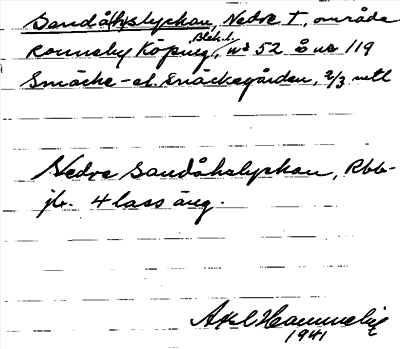 Sandåkslyckan, Nedre T, område
Ronneby Köping, Blek.l. no 52 å no 119
Smäcke- el. Snäckegården, 2/3 mtl
Nedre Sandåkslyckan, Rbb-
jr. 4 lass äng.
Axel Hammelig
1941